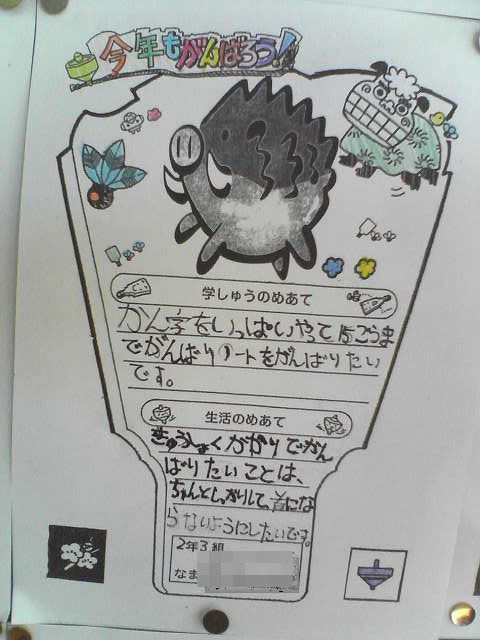 今年もがんばろう!
学しゅうのめあて
かん字をいっぱいやって15ごうま
でがんばりノートをがんばりたい
です。
生活のめあて
きゅうしょくがかりでがん
ばりたいことは、
ちゃんとしっかりして、首にな
らないようにしたいです。
2年3組
なま